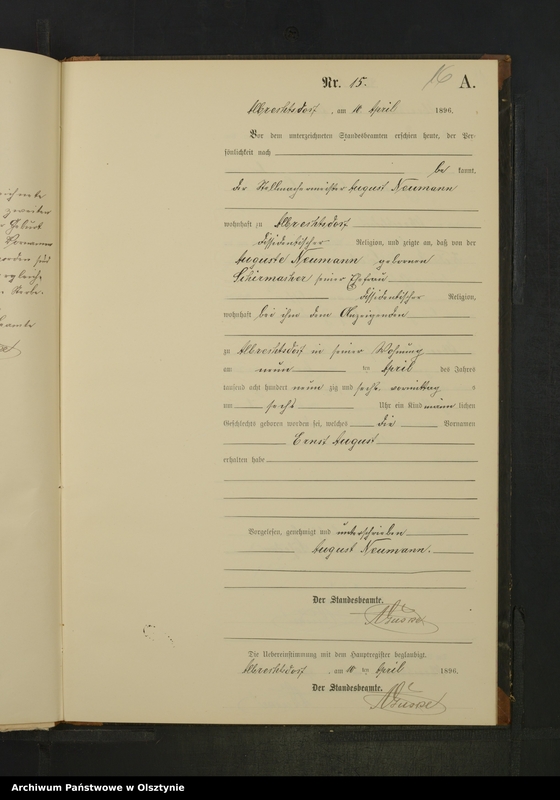 Nr. 15.
16
A.
Albrechtsdorf, am 10. April 1896.
Vor dem unterzeichneten Standesbeamten erschien heute, der Per-
sönlichkeit nach
be kannt,
der Stellmachermeister August Neumann
wohnhaft zu Albrechtsdorf
dissidentischer Religion, und zeigte an, daß von der
Auguste Neumann gebornen
Schirmacher seiner Ehefrau
dissidentischer Religion,
wohnhaft bei ihm dem Anzeigenden
zu Albrechtsdorf in seiner Wohnung
am neun ten April des Jahres
tausend acht hundert neun zig und sechs, vormittag s
um sechs Uhr ein Kind männ lichen
Geschlechts geboren worden sei, welches die Vornamen
Ernst August
erhalten habe
Vorgelesen, genehmigt und unterschrieben
August Neumann.
Der Standesbeamte.
Die Uebereinstimmung mit dem Hauptregister beglaubigt.
Albrechtsdorf, am 10 ten April 1896.
Der Standesbeamte.
Archiwum Państwowe w Olsztynie